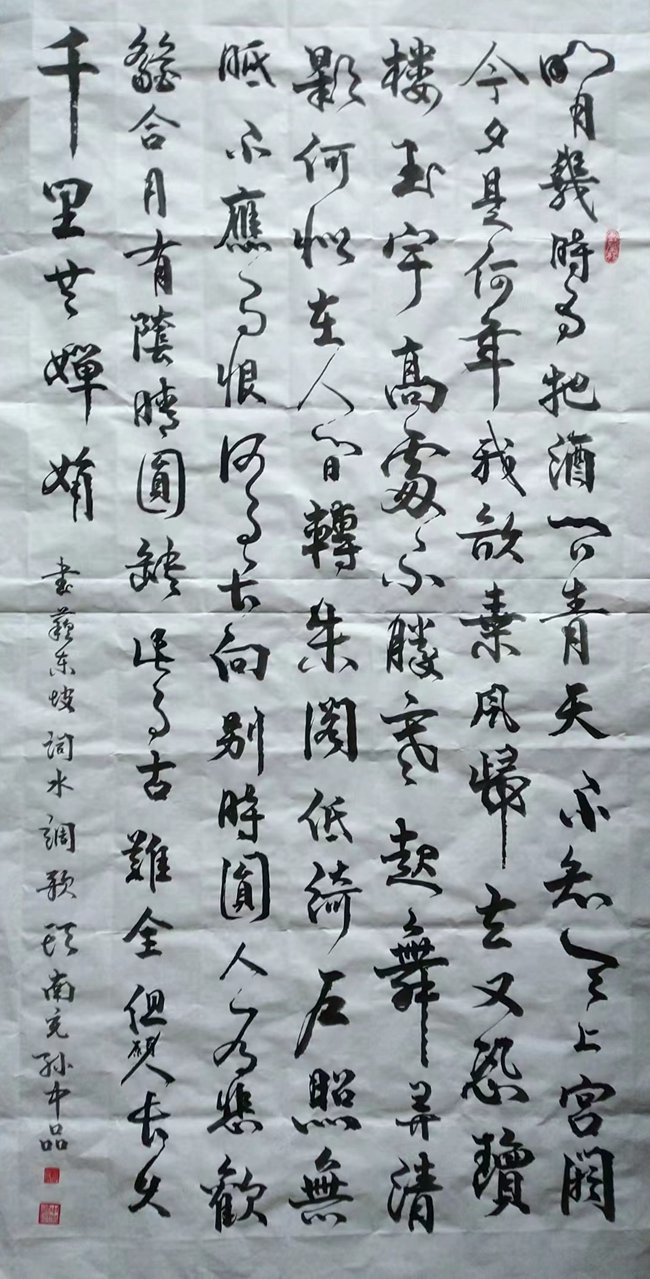 明月幾時有把酒問青天不知天上宮闕
今夕是何年我欲乘風歸去又恐瓊
楼玉宇高處不勝寒起舞弄清
影何似在人間轉朱閣低綺戶照無
眠不應有恨何事長向別時圓人有悲歡
離合月有陰晴圓缺此事古難全但願人長久
千里共嬋娟
書蘇東坡詞水調歌頭南充孫中品